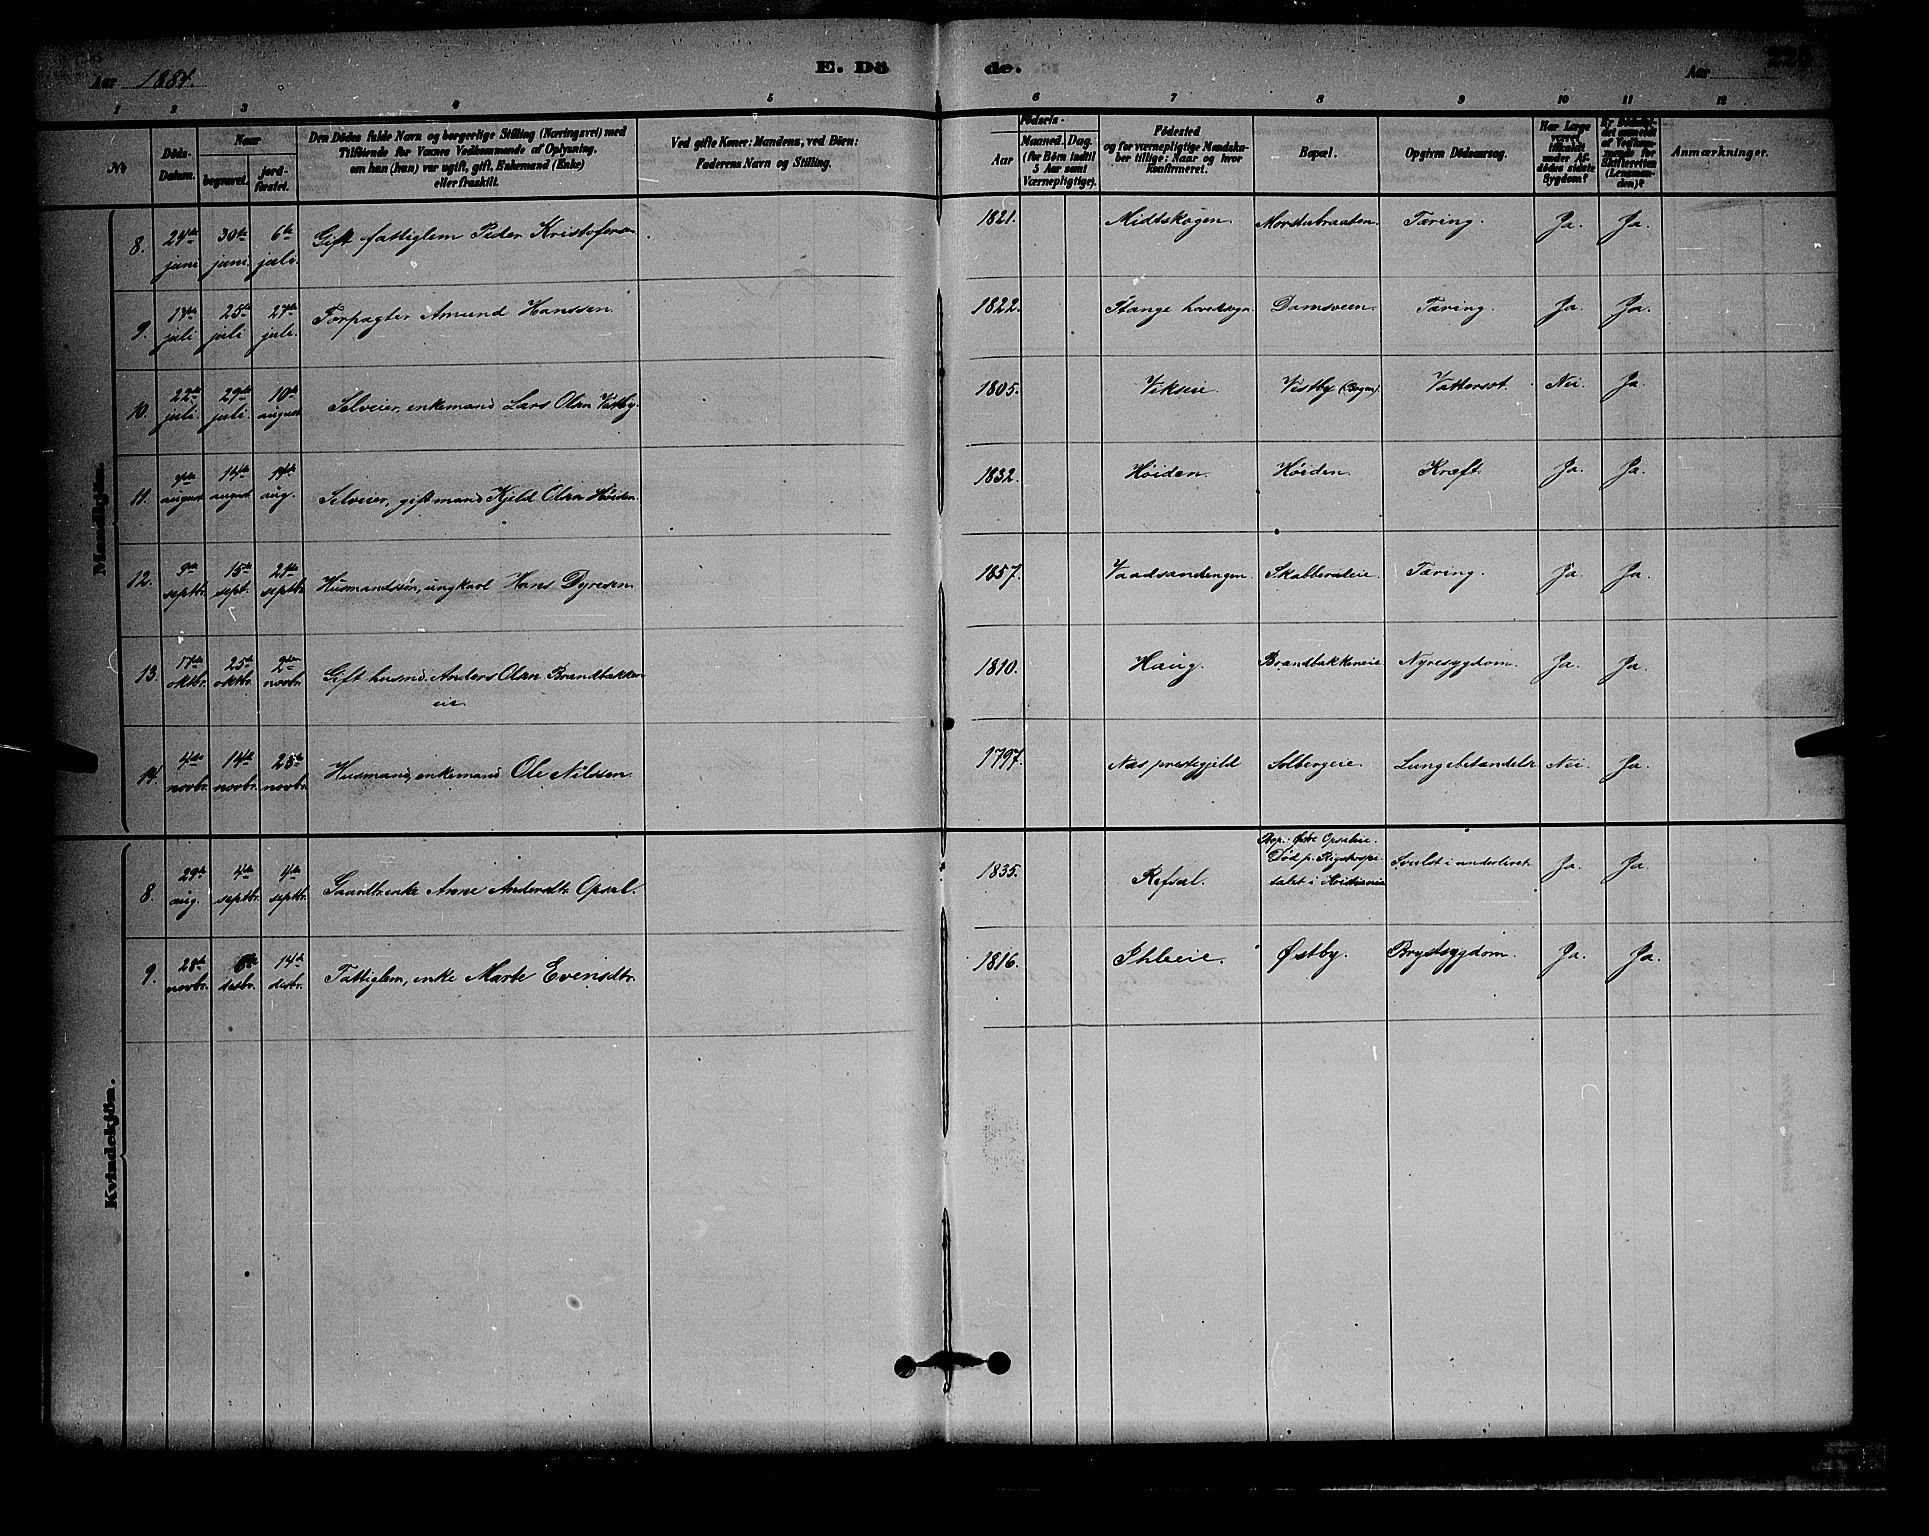 Aar 1884.
E. Dö de.
Aar
1 2 3 4 5 6 7 8 9 10 11 12
No
Döds-Datum.
Naar
begravet.
jord-fæstet.
Den Dödes fulde Navn og borgerlige Stilling (Næringsvei) med
Tilföiende for Vaxnes Vedkommende af Oplysning,
om han (hun) var ugift, gift, Enkemand (Enke)
eller fraskilt.
Ved gifte Koner: Mandens, ved Börn:
Faderens Navn og Stilling.
Födsels-
Aar
Maaned. Dag.
(for Börn indtil
5 Aar samt
Værnepligtige).
Födested
og for værnepligtige Mandska-
ber tillige: Naar og hvor
konfirmeret.
Bopæl.
Opgiven Dödsaarsag.
Har Læge
været
tilkaldt
under Af-
dödes sidste
Sygdom?
Er Dödsfal-
det anmeldt
af Vedkom-
mende for
Skifteretten
(Lensman-
den)?
Anmærkninger.
Mandkjön.
8. 24de juni 30te juni. 6te juli. Gift fattiglem Peder Kristofersen 1821. Midtskogen. Morstubraaten. Tæring. Ja. Ja.
9. 17de juli 25de juli 27de juli. Forpagter Amund Hanssen. 1822. Stange hovedsogn Damsveen. Tæring. Ja. Ja.
10. 22de juli. 29de juli. 10de august Selveier, enkemand Lars Olsen Vestby. 1805. Vikseie. Vestby Vattersot. Nei. Ja.
11. august 14de august 17de aug. Selveier, giftmand Kjeld Olsen Høiden. 1832. Høiden. Høiden. Kræft. Ja. Ja.
12. 9de septbr. 15de sept. 21de septbr. Husmandssøn, ungkarl Hans Dyresen. 1857. Vaadsandengen. Skabberudeie. Tæring. Ja. Ja.
13. 17de oktbr. 25de oktbr. 2den novbr. Gift husmd. Anders Olsen Brandbakken
eie. 1810. Haug. Brandbakkeneie Nyresygdom. Ja. Ja.
14. 4de novbr. 14de novbr. 25de novbr. Husmand, enkemand Ole Nilssen. 1797. Nes prestegjeld Solbergeie. Lungebetændelse Nei. Ja.
Kvindekjön.
8. 29de aug. 4de septbr. 4de septbr. Gaardbr.enke Anne Andersdtr. Opsal. 1835. Refsal. Bop.: Østre Opsaleie.
Død p. Rigshospi
talet i Kristiania Svulst i underlivet Ja. Ja.
9. 28de novbr. 6te desbr. 14de desbr. Fattiglem, enke Marte Evensdtr. 1816. Ihleeie. Østby. Brystsygdom. Ja. Ja.